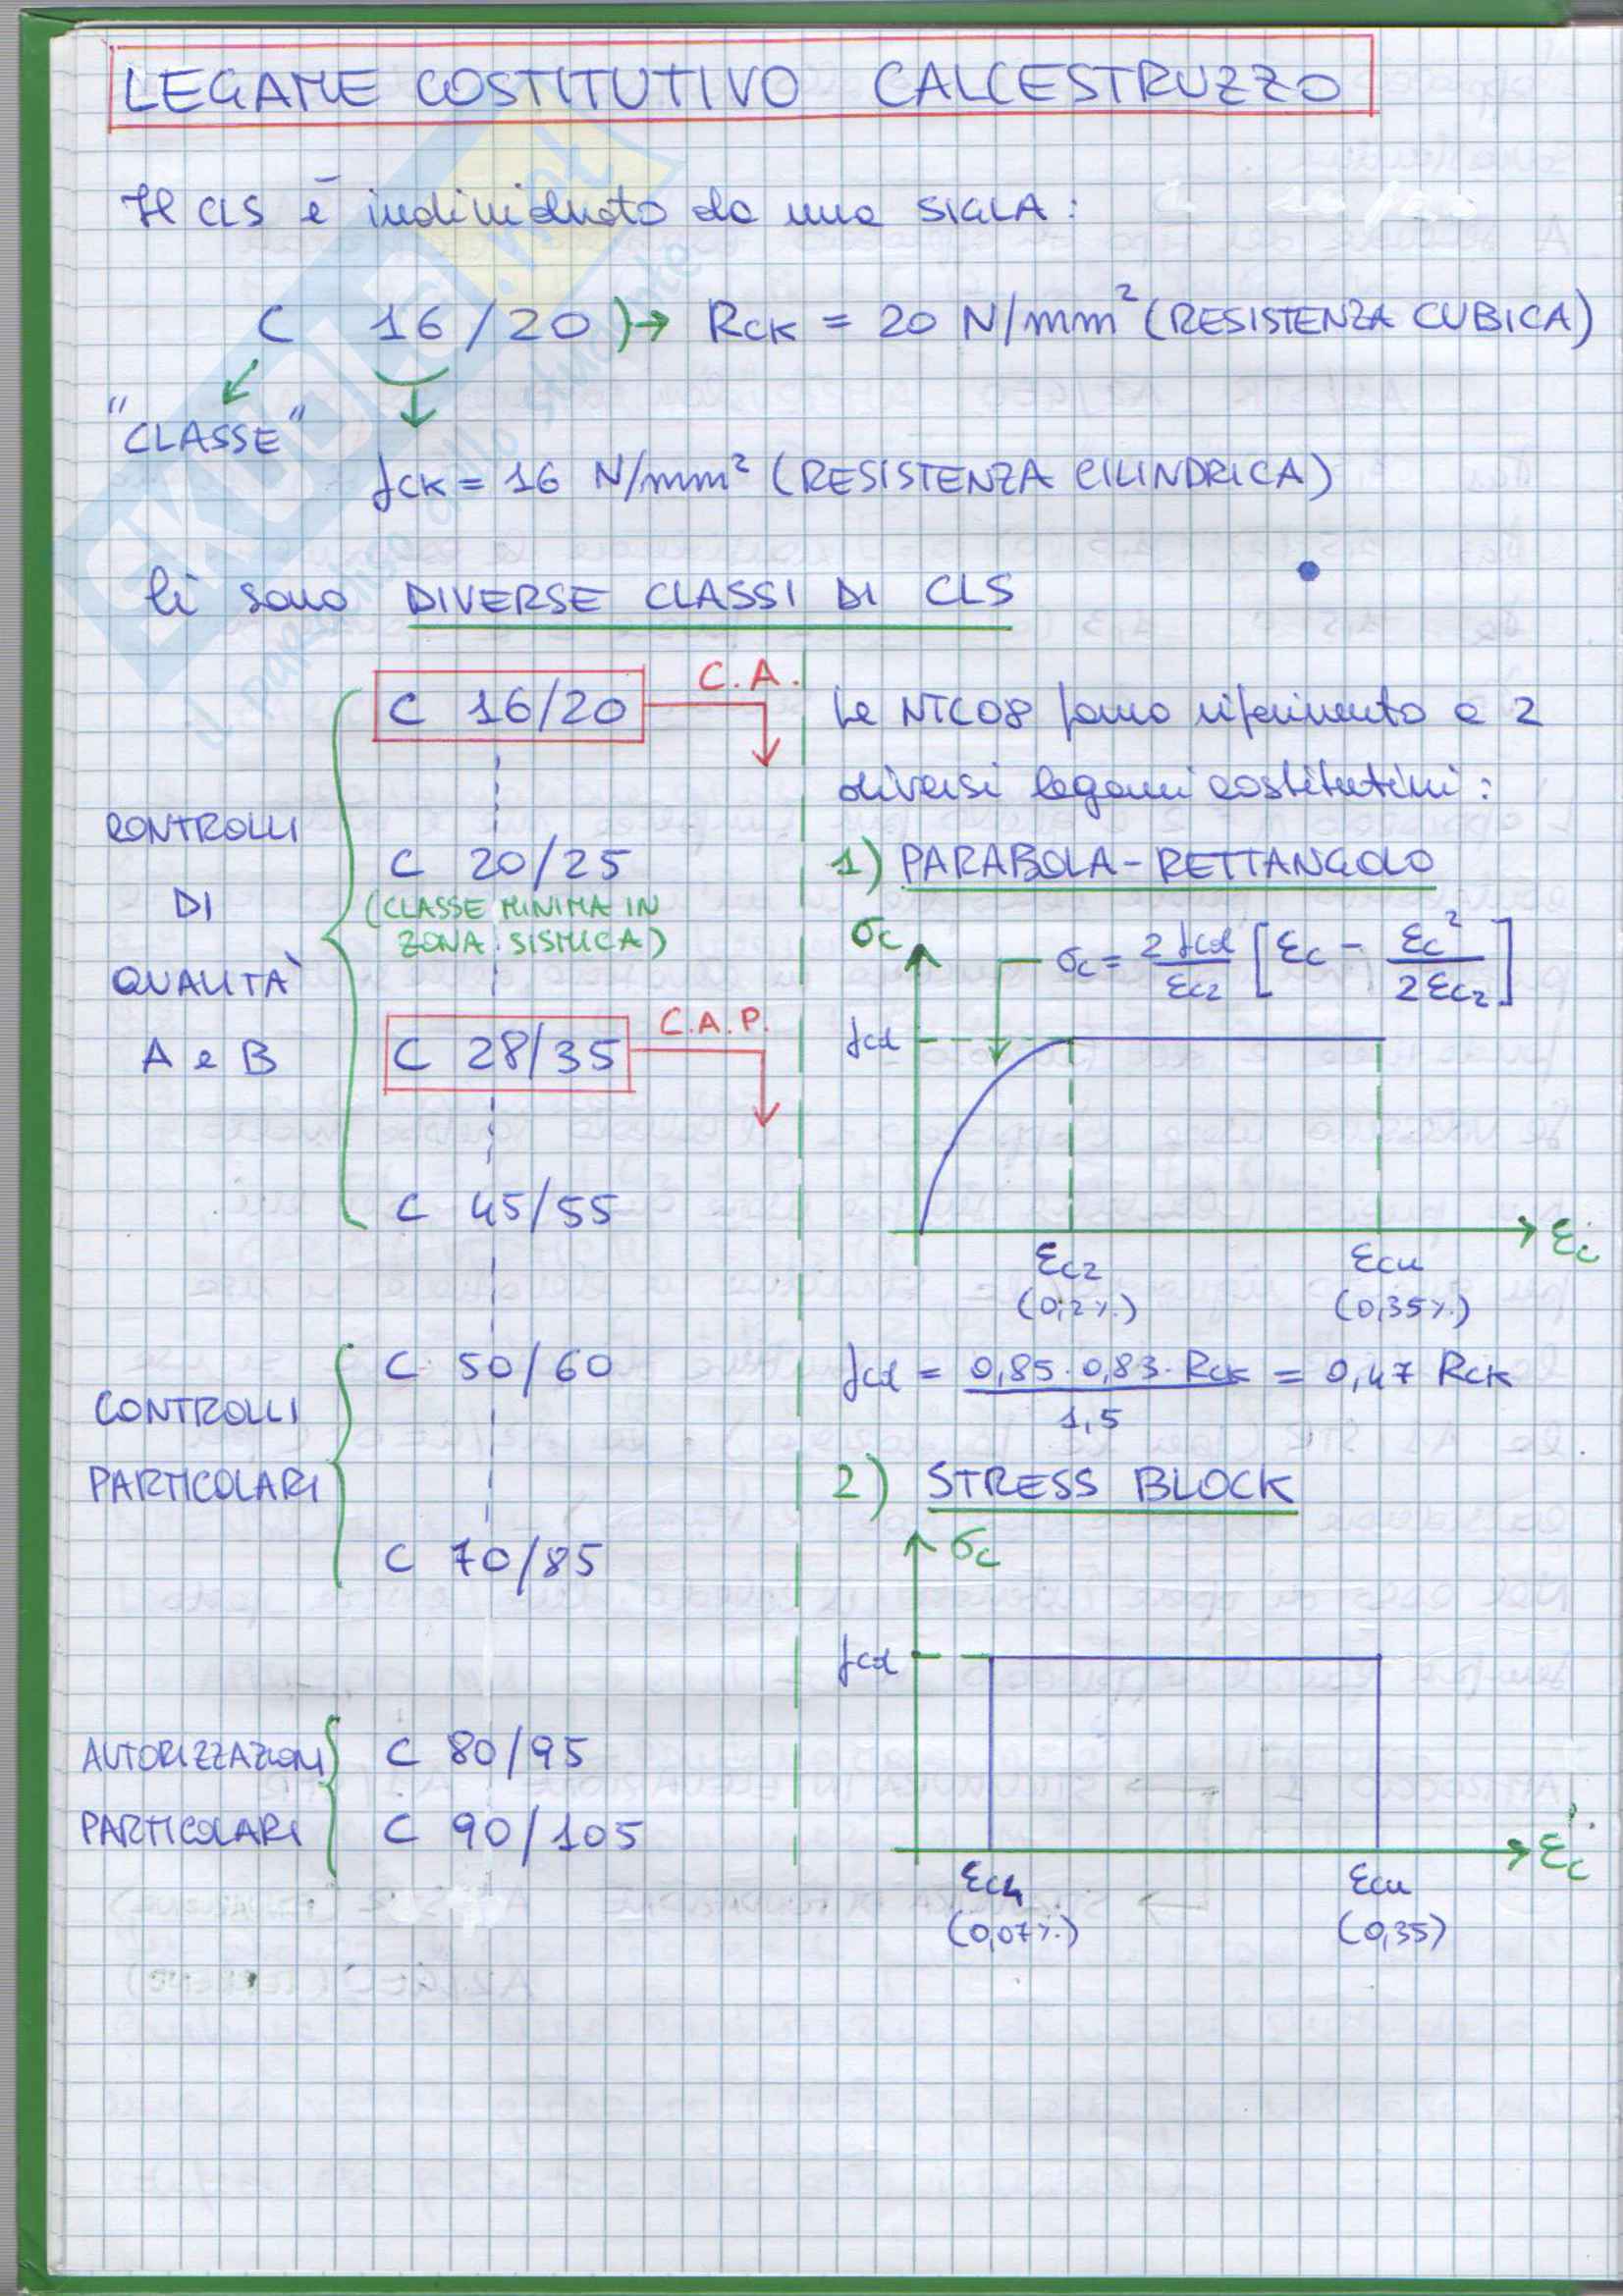 LEGAME COSTITUTIVO CALCESTRUZZO
Il CLS è individuato da una SIGLA:
C 16/20 → RCK = 20 N/mm² (RESISTENZA CUBICA)
"CLASSE"
fCK = 16 N/mm² (RESISTENZA CILINDRICA)
Ci sono DIVERSE CLASSI DI CLS
CONTROLLI
DI
QUALITÀ
A e B
C 16/20
C.A.
C 20/25
(CLASSE MINIMA IN
ZONA SISMICA)
C 28/35
C.A.P.
C 45/55
CONTROLLI
PARTICOLARI
C 50/60
C 70/85
AUTORIZZAZIONI
PARTICOLARI
C 80/95
C 90/105
Le NTC08 fanno riferimento a 2
diversi legami costitutivi:
1) PARABOLA-RETTANGOLO
σc
σc = 2 fcd / εc2 [εc - εc² / 2εc2]
fcd
εc
εc2
(0,2%)
εcu
(0,35%)
fcd = 0,85·0,83·RCK / 1,5 = 0,47 RCK
2) STRESS BLOCK
σc
fcd
εc
εc4
(0,07%)
εcu
(0,35)
SKUOLA.net
il paradiso dello studente